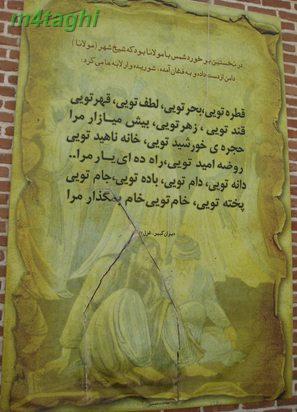 m4taghi
در نخستین برخورد شمس با مولانا بود که شیخ شهر (مولانا)
دامن از دست داد و به فغان آمد، شوریده وار لابه ها می کرد:
قطره تویی، بحر تویی، لطف تویی، قهر تویی
قند تویی، زهر تویی، بیش میازار مرا
حجره ی خورشید تویی، خانه ناهید تویی
روضه امید تویی، راه ده ای یار مرا..
دانه تویی، دام تویی، باده تویی، جام تویی
پخته تویی، خام تویی خام بمگذار مرا
دیوان کبیر، غزل